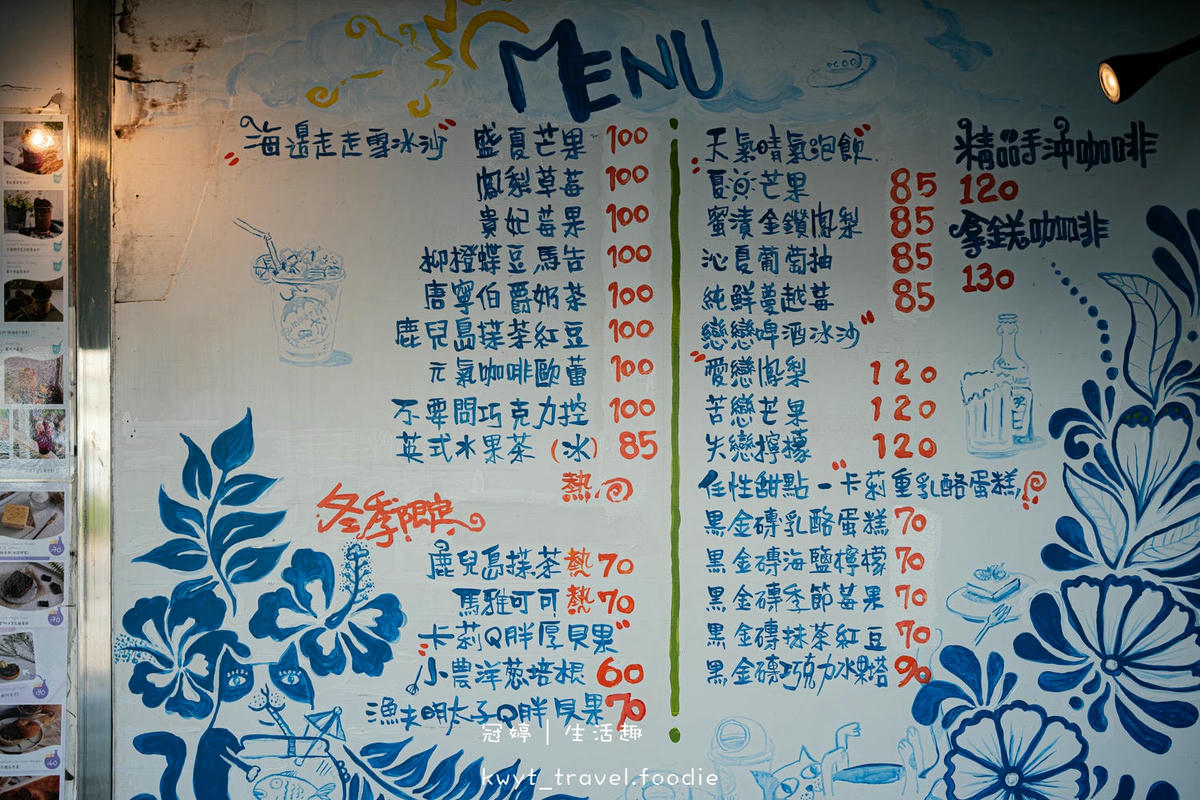 MENU
"海邊走走雪冰沙" 盛夏芒果 100
鳳梨草莓 100
貴妃莓果 100
柳橙蝶豆馬告 100
唐寧伯爵奶茶 100
鹿兒島抹茶紅豆 100
元氣咖啡歐蕾 100
不要問巧克力控 100
英式水果茶 (冰) 85
熱
冬季限定
鹿兒島抹茶 熱 70
馬雅可可 熱 70
"卡莉Q胖厚貝果"
小農洋蔥培根 60
漁夫明太子Q胖貝果 70
"天氣晴氣泡飲"
夏浜芒果 85
蜜漬金鑽鳳梨 85
沁夏葡萄柚 85
純鮮蔓越莓 85
"戀戀啤酒冰沙"
愛戀鳳梨 120
苦戀芒果 120
失戀檸檬 120
任性甜點-"卡莉重乳酪蛋糕"
黑金磚乳酪蛋糕 70
黑金磚海鹽檸檬 70
黑金磚季節莓果 70
黑金磚抹茶紅豆 70
黑金磚巧克力水果塔 90
精品手沖咖啡
120
拿鐵咖啡
130
冠婷 | 生活趣
kwyt_travel.foodie